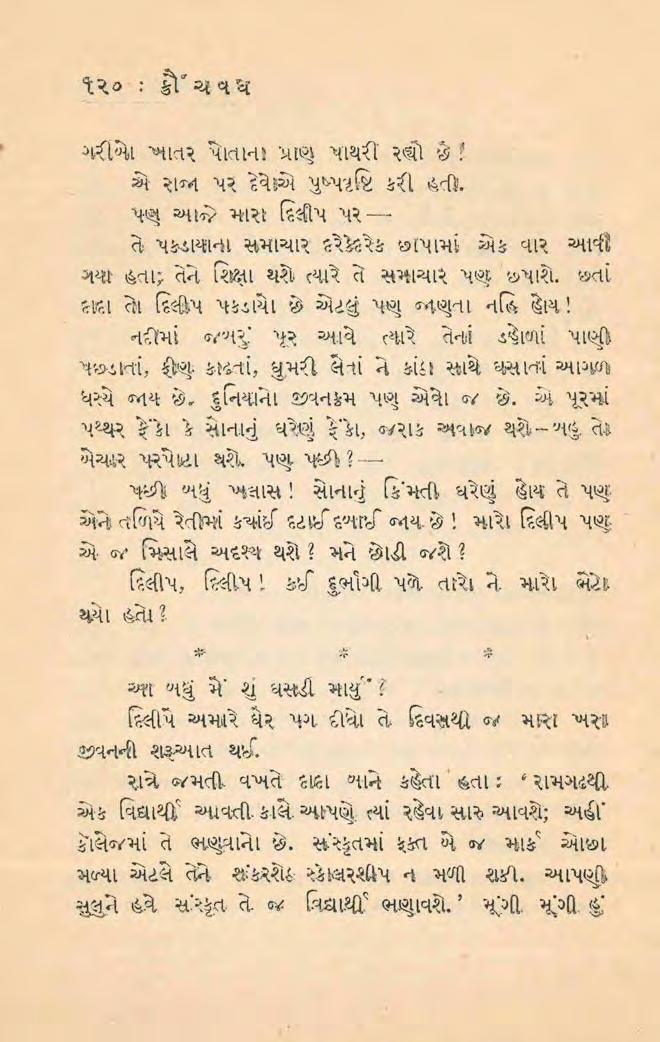 ૧૨૦ : ક્રૌંચવધ
ગરીબો ખાતર પોતાના પ્રાણ પાથરી રહ્યો છે !
એ રાજા પર દેવોએ પુષ્પવૃષ્ટિ કરી હતી.
પણ આજે મારા દિલીપ પર —
તે પકડાયાના સમાચાર દરેકેદરેક છાપામાં એક વાર આવી
ગયા હતા; તેને શિક્ષા થશે ત્યારે તે સમાચાર પણ છપાશે. છતાં
દાદા તો દિલીપ પકડાયો છે એટલું પણ જાણતા નહિ હોય !
નદીમાં જબરું પૂર આવે ત્યારે તેનાં ડહોળાં પાણી
પછડાતાં, ફીણ કાઢતાં, ઘુમરી લેતાં ને કાંઠા સાથે ઘસાતાં આગળ
ધસ્યે જાય છે. દુનિયાનો જીવનક્રમ પણ એવો જ છે. એ પૂરમાં
પથ્થર ફેંકો કે સોનાનું ઘરેણું ફેંકો, જરાક અવાજ થશે – બહુ તો
બેચાર પરપોટા થશે. પણ પછી ? —
પછી બધું ખલાસ ! સોનાનું કિંમતી ઘરેણું હોય તે પણ
એને તળિયે રેતીમાં કયાંઈ દટાઈ દબાઈ જાય છે ! મારો દિલીપ પણ
એ જ મિસાલે અદશ્ય થશે ? મને છોડી જશે ?
દિલીપ, દિલીપ ! કઈ દુર્ભાગી પળે તારો ને મારો ભેટો
થયો હતો ?
* * *
આ બધું મેં શું ઘસડી માર્યું ?
દિલીપે અમારે ઘેર પગ દીધો તે દિવસથી જ મારા ખરા
જીવનની શરૂઆત થઈ.
રાત્રે જમતી વખતે દાદા બાને કહેતા હતા : ‘રામગઢથી
એક વિદ્યાર્થી આવતી કાલે આપણે ત્યાં રહેવા સારુ આવશે; અહીં
કૉલેજમાં તે ભણવાનો છે. સંસ્કૃતમાં ફક્ત બે જ માર્ક ઓછા
મળ્યા એટલે તેને શંકરશેઠ સ્કોલરશીપ ન મળી શકી. આપણી
સુલુને હવે સંસ્કૃત તે જ વિદ્યાર્થી ભણાવશે.’ મૂંગી મૂંગી હું